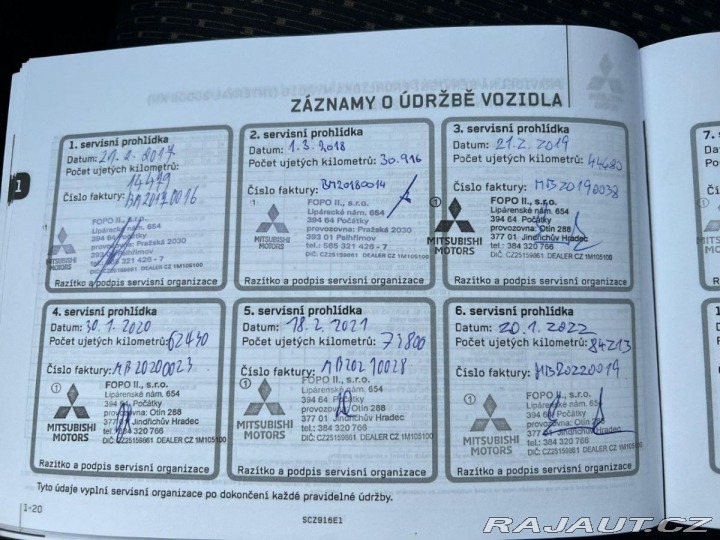 ZÁZNAMY O ÚDRŽBĚ VOZIDLA
1
1. servisní prohlídka
Datum: 21.2.2017
Počet ujetých kilometrů:
14479
Číslo faktury: BM20170016
FOPO II., s.r.o.
Lipárecké nám. 654
394 64 Počátky
provozovna: Pražská 2030
393 01 Pelhřimov
tel.: 565 321 426 - 7
DIČ: CZ25159861 DEALER CZ 1M105100
MITSUBISHI
MOTORS
Razítko a podpis servisní organizace
2. servisní prohlídka
Datum: 1.3.2018
Počet ujetých kilometrů: 30.916
Číslo faktury: BM20180014
FOPO II., s.r.o.
Lipárecké nám. 654
394 64 Počátky
provozovna: Pražská 2030
393 01 Pelhřimov
tel.: 565 321 426 - 7
DIČ: CZ25159861 DEALER CZ 1M105100
MITSUBISHI
MOTORS
Razítko a podpis servisní organizace
3. servisní prohlídka
Datum: 21.2.2019
Počet ujetých kilometrů: 44680
Číslo faktury: MB20190038
FOPO II., s.r.o.
Lipárenské nám. 654
394 64 Počátky
provozovna: Otín 288
377 01 Jindřichův Hradec
tel.: 384 320 766
DIČ: CZ25159861 DEALER CZ 1M105100
MITSUBISHI
MOTORS
Razítko a podpis servisní organizace
4. servisní prohlídka
Datum: 30.1.2020
Počet ujetých kilometrů: 62430
Číslo faktury: MB2020023
FOPO II., s.r.o.
Lipárenské nám. 654
394 64 Počátky
provozovna: Otín 288
377 01 Jindřichův Hradec
tel.: 384 320 766
DIČ: CZ25159861 DEALER CZ 1M105100
MITSUBISHI
MOTORS
Razítko a podpis servisní organizace
5. servisní prohlídka
Datum: 18.2.2021
Počet ujetých kilometrů: 73800
Číslo faktury: MB20210028
FOPO II., s.r.o.
Lipárenské nám. 654
394 64 Počátky
provozovna: Otín 288
377 01 Jindřichův Hradec
tel.: 384 320 766
DIČ: CZ25159861 DEALER CZ 1M105100
MITSUBISHI
MOTORS
Razítko a podpis servisní organizace
6. servisní prohlídka
Datum: 20.1.2022
Počet ujetých kilometrů: 84213
Číslo faktury: MB20220019
FOPO II., s.r.o.
Lipárenské nám. 654
394 64 Počátky
provozovna: Otín 288
377 01 Jindřichův Hradec
tel.: 384 320 766
DIČ: CZ25159861 DEALER CZ 1M105100
MITSUBISHI
MOTORS
Razítko a podpis servisní organizace
Tyto údaje vyplní servisní organizace po dokončení každé pravidelné údržby.
1-20
SCZ916E1
7.
RAJAUT.CZ